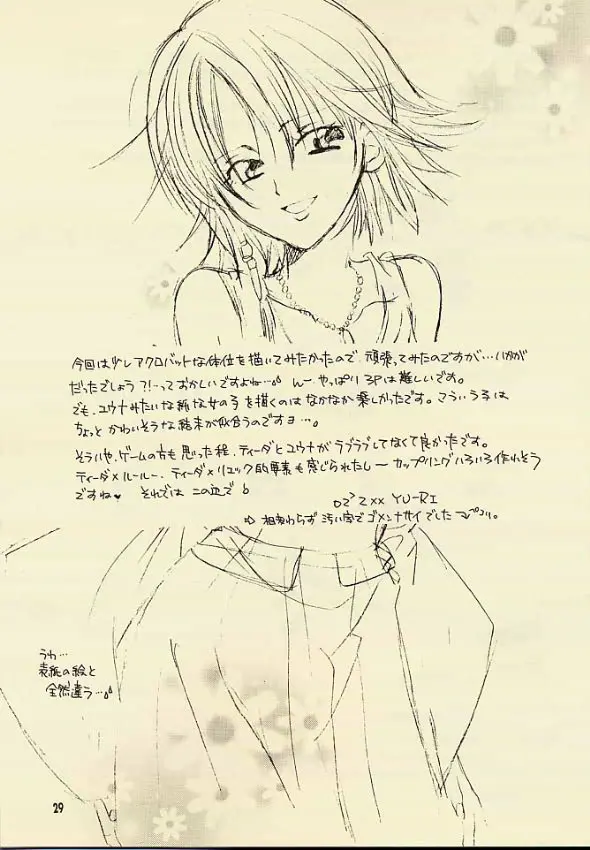 今回は少しアクロバットな体位を描いてみたかったので、頑張ってみたのですが…いかが
だったでしょう?!…っておかしいですよね… んー やっぱり 3Pは難しいです。
でも、ユウナみたいな純な女の子を描くのは なかなか楽しかったです。こういう子は
ちょっと かわいそうな結末が似合うのですヨ…。
そういや、ゲームの方も思った程、ティーダとユウナがラブラブしてなくて良かったです。
ティーダ×ルールー、ティーダ×リュック的要素も感じられたし〜 カップリングいろいろ作れそう
ですね♥ それでは この辺で
YU-RI
相変わらず 汚い字で ゴメンナサイでした
うわ…
表紙の絵と
全然違う…
29